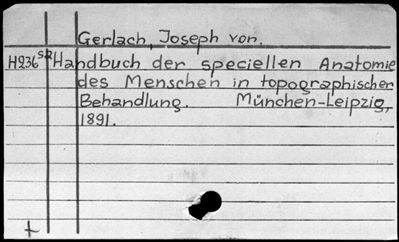 Gerlach, Joseph von.
H236 SR Handbuch der speciellen Anatomie
des Menschen in topographischer
Behandlung. München-Leipzig,
1891.